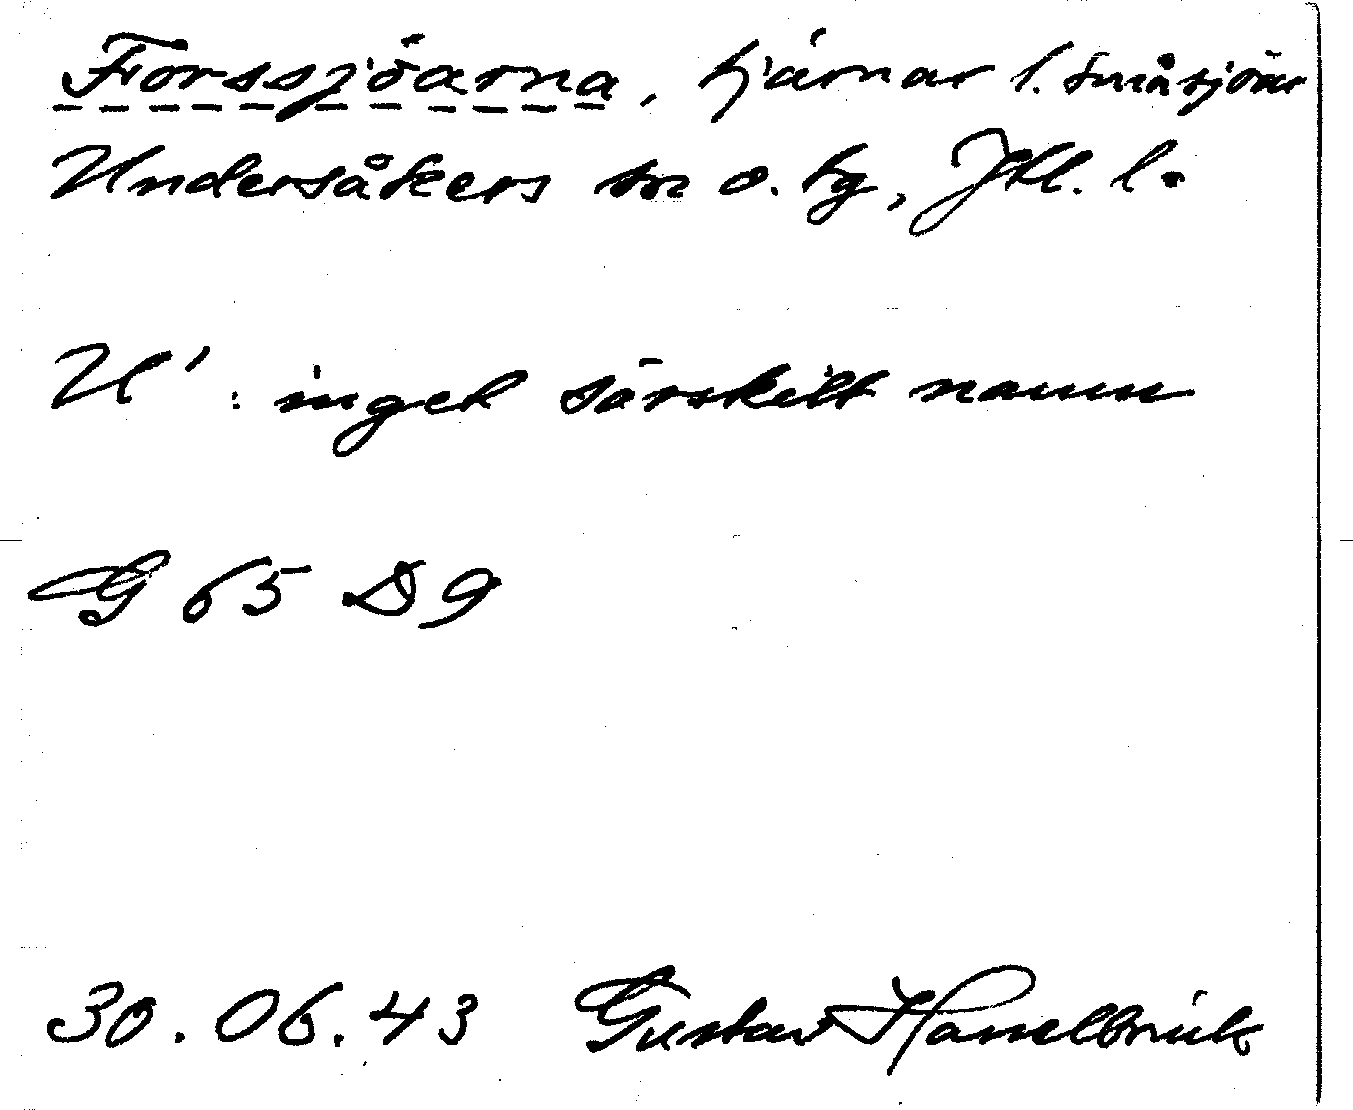 Forssjöarna, tjärnar l. småsjöar
Undersåkers sn o. tg, Jtl. l.
U': inget särskilt namn
G 65 D 9
30.06.43 Gustav Hasselbrink